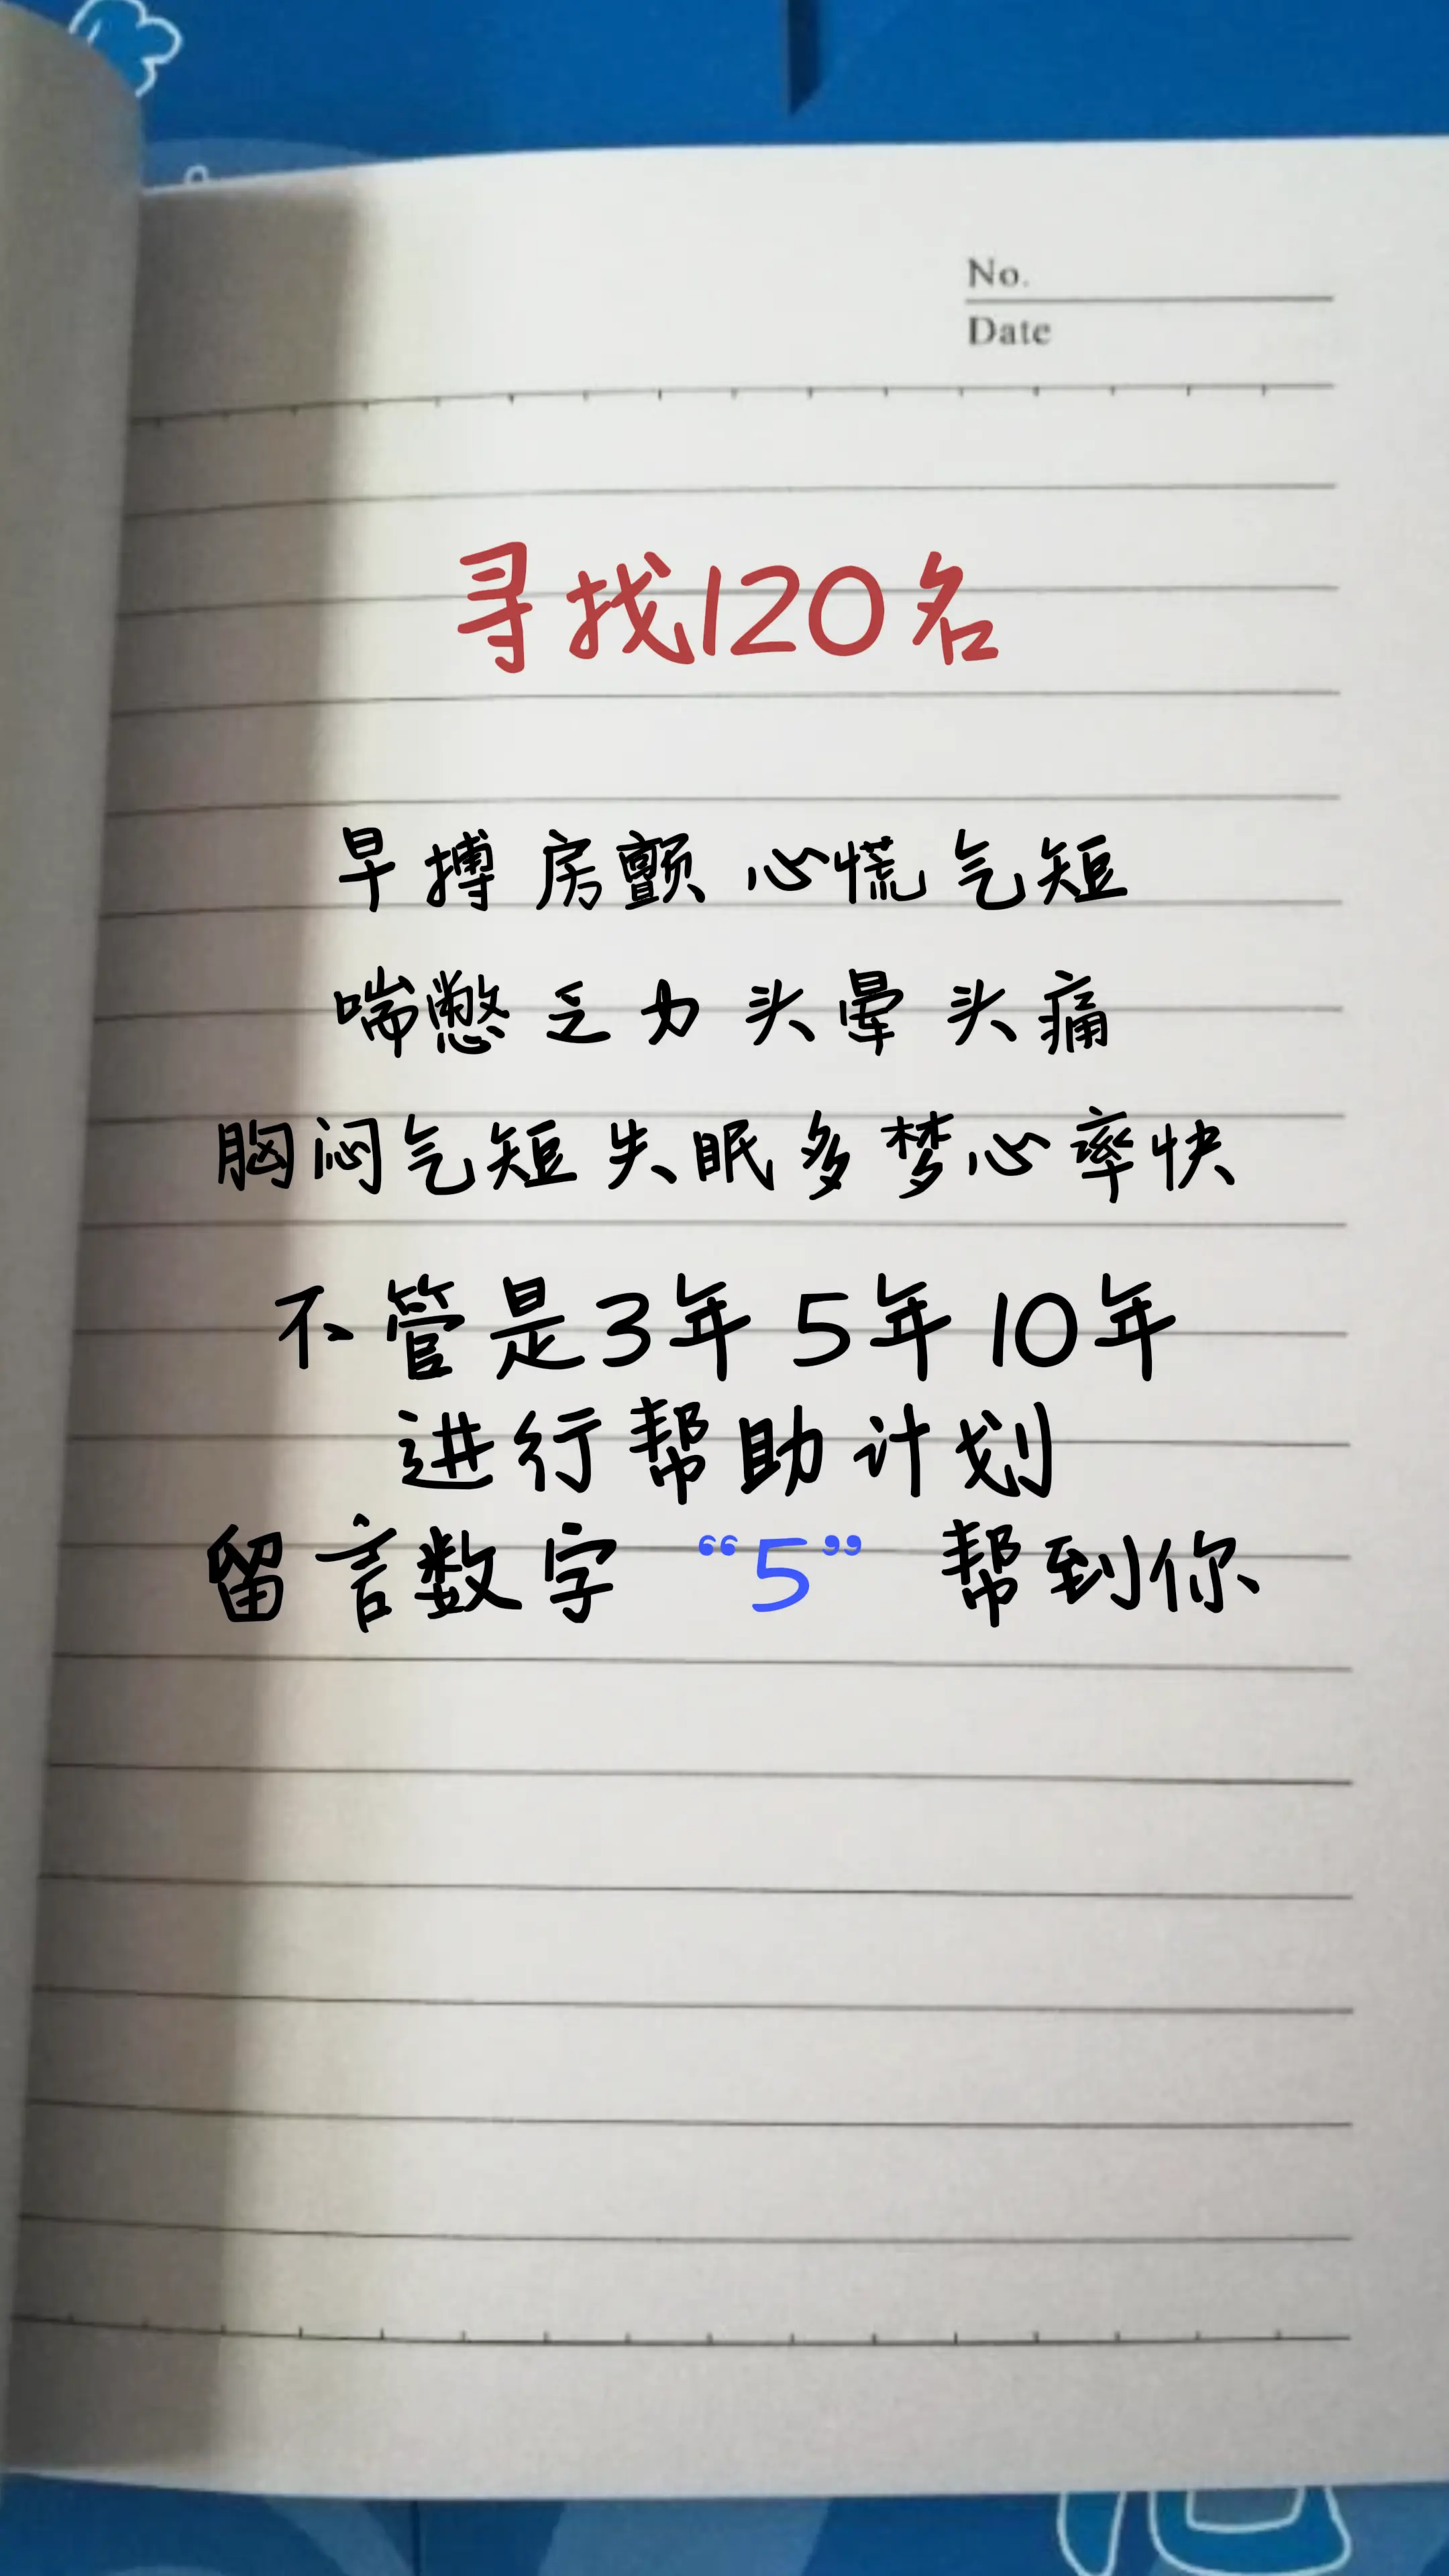 No.
Date
寻找120名
早搏 房颤 心慌 气短
喘憋 乏力 头晕 头痛
胸闷气短失眠多梦心率快
不管是3年 5年 10年
进行帮助计划
留言数字 “5” 帮到你